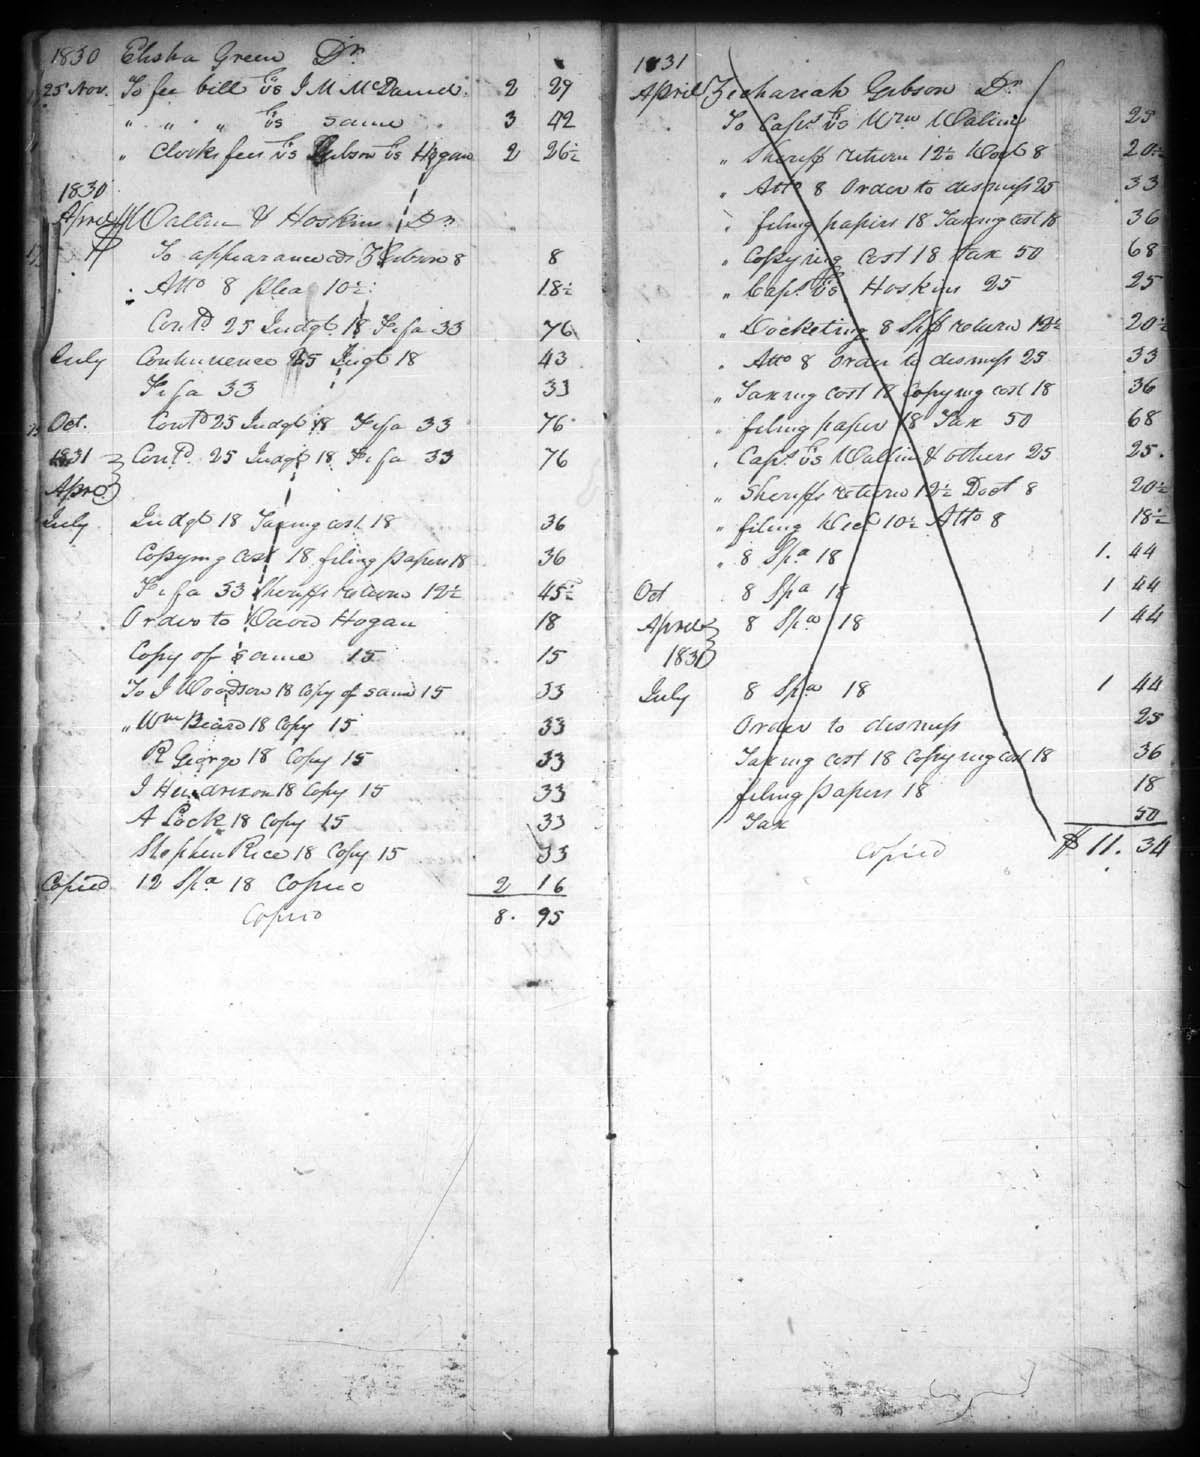 1830 Elisha Green Dr
25 Nov. To fee bill vs J M McDaniel 2 29
" " " vs same 3 42
" Clerks fees vs Gibson vs Hogan 2 26½
1830
April Wallin & Hoskins Dr
To appearance ads Z Gibson 8 8
Atto 8 plea 10½ 18½
Contd 25 Judgt 18 Fi fa 33 76
July Continuence 25 Jugt 18 43
Fi fa 33 33
Oct. Contd 25 Judgt 18 Fi fa 33 76
1831 Contd 25 Judgt 18 Fi fa 33 76
April
July Judgt 18 Taxing cost 18 36
Copying cost 18 filing papers 18 36
Fi fa 33 Sheriffs return 12½ 45½
Order to David Hogan 18
Copy of same 15 15
To J Woodson 18 Copy of same 15 33
" Wm Beard 18 Copy 15 33
R George 18 Copy 15 33
J Hendrixon 18 Copy 15 33
A Lock 18 Copy 15 33
Stephen Rice 18 Copy 15 33
Copied 12 Spa 18 Copied 2 16
Copied 8. 95
1831
April Zechariah Gibson Dr
To Caps vs Wm Wallin 25
" Sheriff return 12½ Doct 8 20½
" Atto 8 Order to dismiss 25 33
" filing papers 18 Taxing cost 18 36
" Copying Cost 18 tax 50 68
" Caps vs Hoskins 25 25
" Docketing 8 Shff return 12½ 20½
" Atto 8 Order to dismiss 25 33
" Taxing cost 18 Copying cost 18 36
" filing paper 18 Tax 50 68
" Caps vs Wallin & others 25 25.
" Sheriffs return 12½ Doct 8 20½
" filing Decl 10½ Atto 8 18½
" 8 Spa 18 1. 44
Oct 8 Spa 18 1 44
April 8 Spa 18 1 44
1831
July 8 Spa 18 1 44
Order to dismiss 25
Taxing cost 18 Copying cost 18 36
filing papers 18 18
Tax 50
Copied $ 11. 34